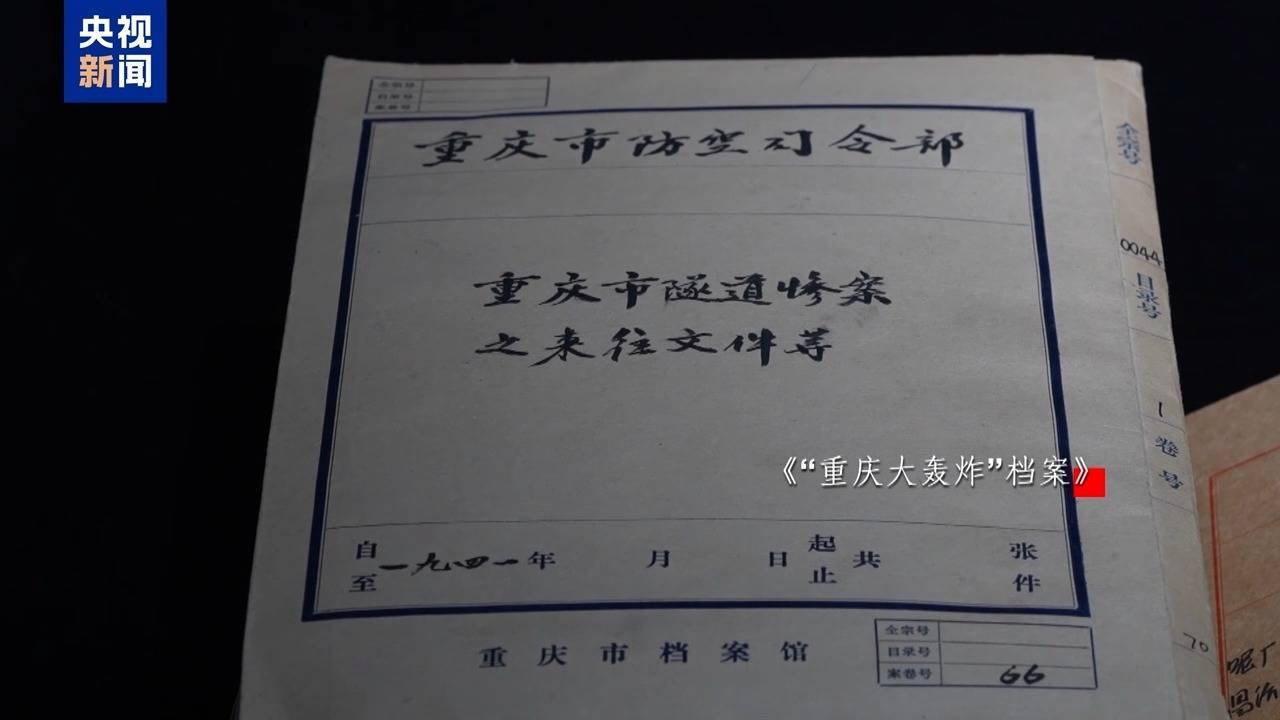 央视
新闻
全宗号
目录号
案卷号
重庆市防空司令部
重庆市隧道惨案
之来往文件等
《“重庆大轰炸”档案》
自
至
一九四一年 月 日
起
止
共
张
件
重庆市档案馆
全宗号
目录号
案卷号 66
全宗号
0044
目录号
1
卷号
70
呢厂